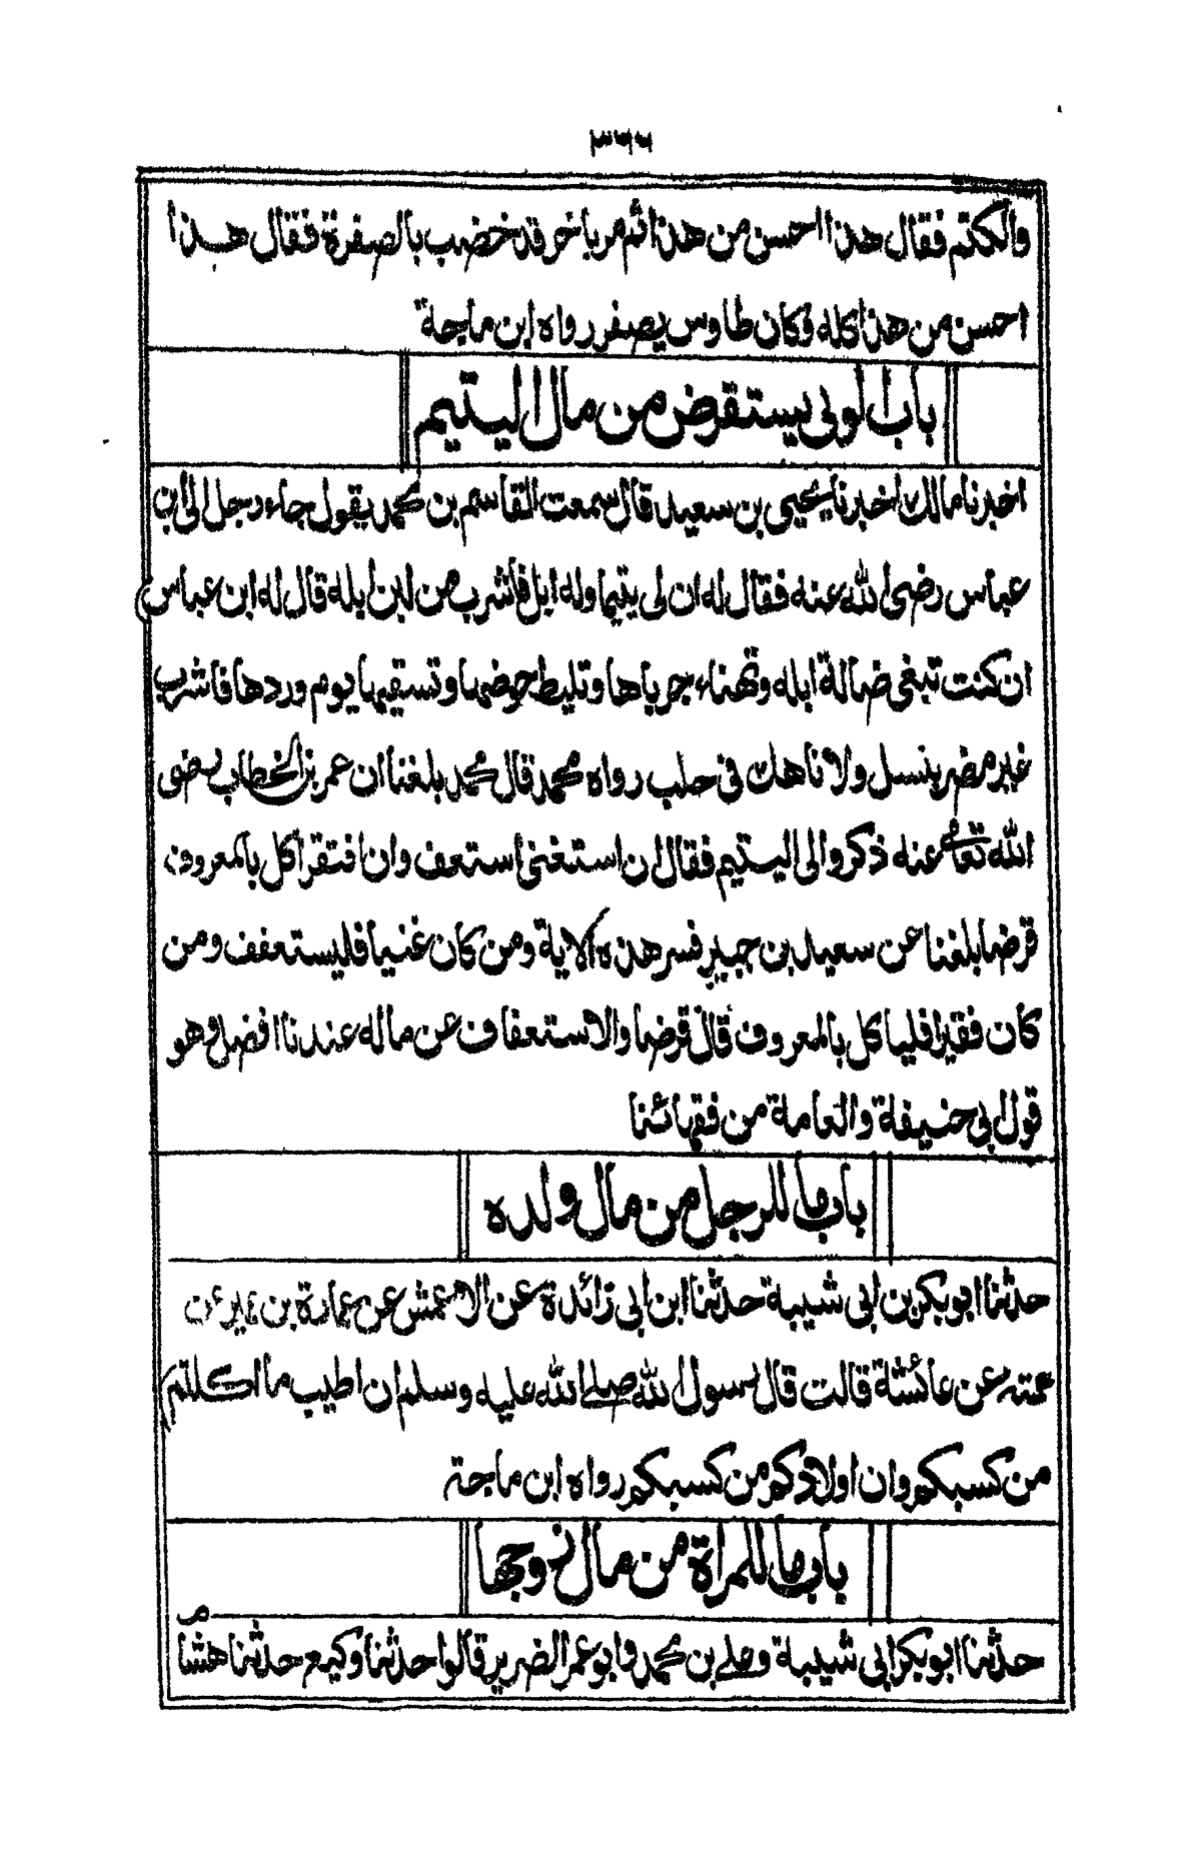 ٣٦٦
والكتم فقال هذا احسن من هذا ثم مر باخر قد خضب بالصفرة فقال هذا
احسن من هذا كله وكان طاوس يصفر رواه ابن ماجة
باب الولي يستقرض من مال اليتيم
اخبرنا مالك اخبرنا يحيى بن سعيد قال سمعت القاسم بن محمد يقول جاء رجل الى ابن
عباس رضي الله عنه فقال له ان لي يتيما وله ابل فاشرب من لبن ابله قال له ابن عباس
ان كنت تبغي ضالة ابله وتهناء جرباها وتليط حوضها وتسقيها يوم وردها فاشرب
غير مضر بنسل ولا ناهك في حلب رواه محمد قال محمد بلغنا ان عمر بن الخطاب رضي
الله تعالى عنه ذكر والى اليتيم فقال ان استغنى استعف وان افتقر اكل بالمعروف
قرضا بلغنا عن سعيد بن جبير فسر هذه الاية ومن كان غنيا فليستعفف ومن
كان فقيرا فلياكل بالمعروف قال قرضا والاستعفاف عن ماله عندنا افضل وهو
قول ابي حنيفة والعامة من فقهائنا
باب ما للرجل من مال ولده
حدثنا ابو بكر بن ابي شيبة حدثنا ابن ابي زائدة عن الاعمش عن عمارة بن عمير عن
عمته عن عائشة قالت قال رسول الله صلى الله عليه وسلم ان اطيب ما اكلتم
من كسبكم وان اولادكم من كسبكم رواه ابن ماجة
باب ما للمراة من مال زوجها
حدثنا ابو بكر ابي شيبة وعلي بن محمد وابو عمر الضرير قالوا حدثنا وكيع حدثنا هشام